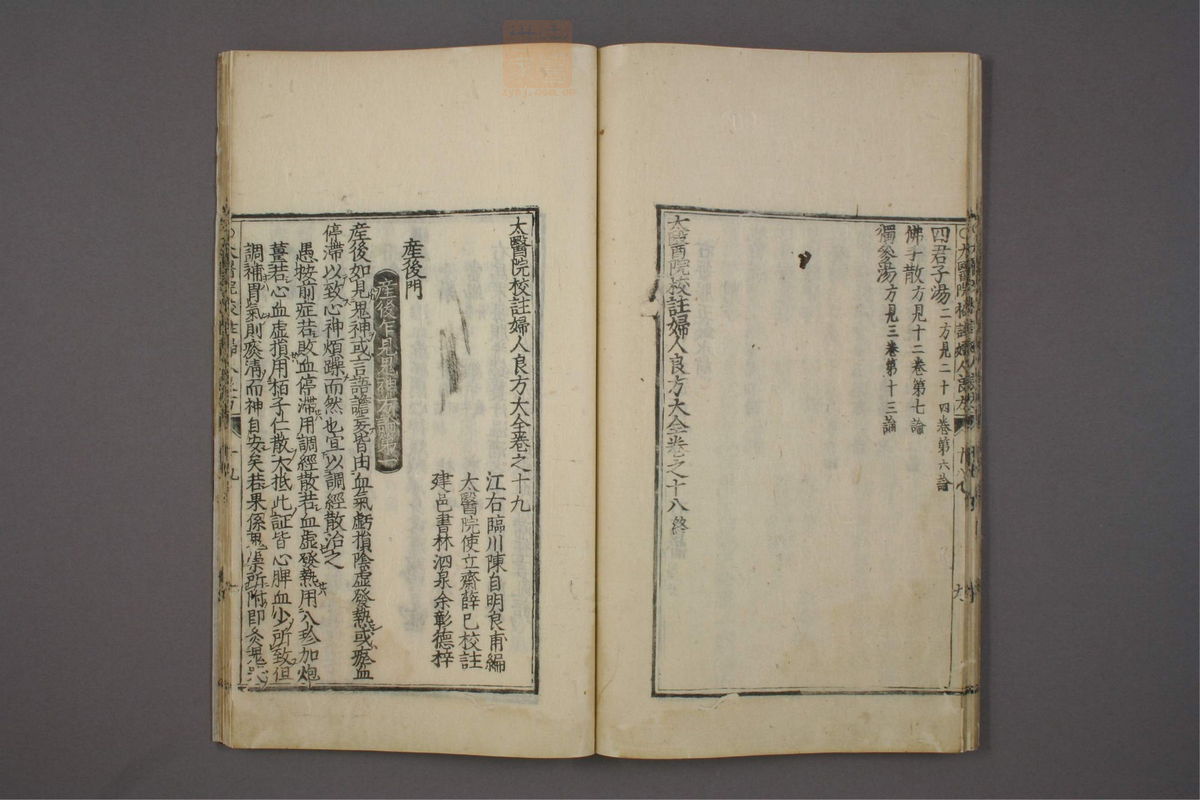 四君子湯二方見二十四卷第六論
佛手散方見十二卷第七論
獨參湯方見三卷第十三論
太醫院校註婦人良方大全卷之十八終
太醫院校註婦人良方大全卷之十九
江右臨川陳自明良甫編
太醫院使立齋薛已校註
建邑書林泗泉余彰德梓
産後門
産後乍見鬼神方論第一
産後如見鬼神或言語譫妄皆由血氣虧損陰虛發熱或瘀血
停滯以致心神煩躁而然也宜以調經散治之
愚按前症若敗血停滯用調經散若血虛發熱用八珍加炮
薑若心血虛損用栢子仁散大抵此証皆心脾血少所致但
調補胃氣則痰清而神自安矣若果係鬼祟所附即灸鬼穴